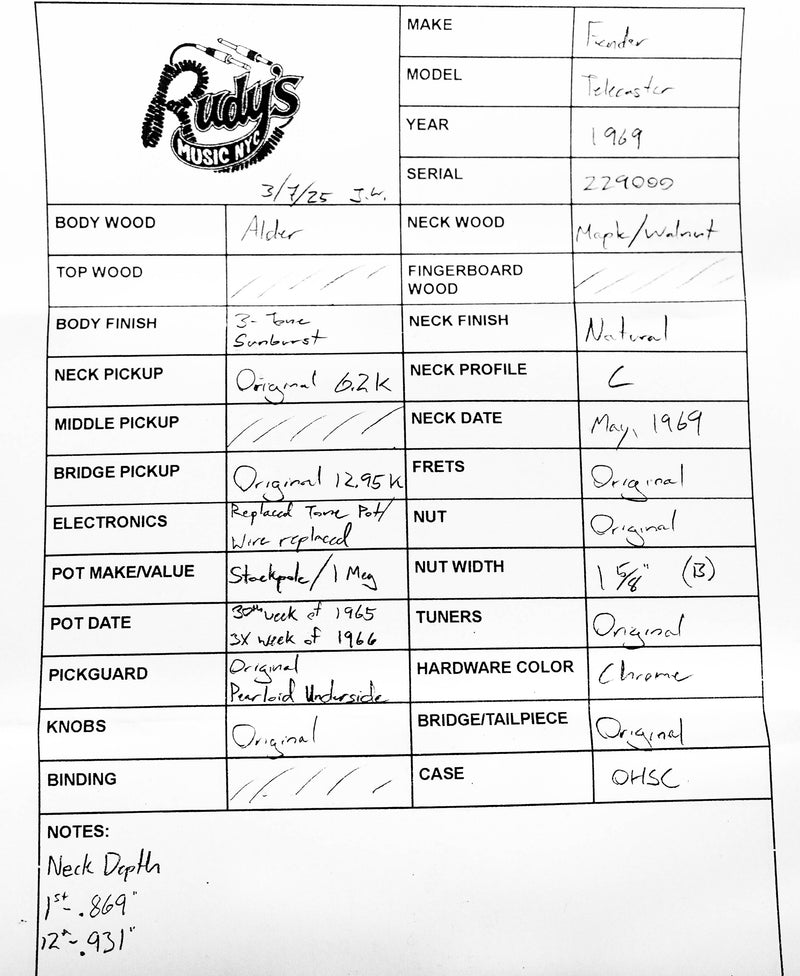 Rudy's
MUSIC NYC
3/7/25 J.W.
MAKE Fender
MODEL Telecaster
YEAR 1969
SERIAL 229000
BODY WOOD Alder NECK WOOD Maple/Walnut
TOP WOOD FINGERBOARD
WOOD
BODY FINISH 3-Tone
Sunburst
NECK FINISH Natural
NECK PICKUP Original 6.2K NECK PROFILE C
MIDDLE PICKUP NECK DATE May, 1969
BRIDGE PICKUP Original 12.95K FRETS Original
ELECTRONICS Replaced Tone Pot/
Wire replaced
NUT Original
POT MAKE/VALUE Stackpole/1 Meg NUT WIDTH 1 5/8" (B)
POT DATE 30th week of 1965
3X week of 1966
TUNERS Original
PICKGUARD Original
Pearloid Underside
HARDWARE COLOR Chrome
KNOBS Original BRIDGE/TAILPIECE Original
BINDING CASE OHSC
NOTES:
Neck Depth
1st- .869"
12th- .931"